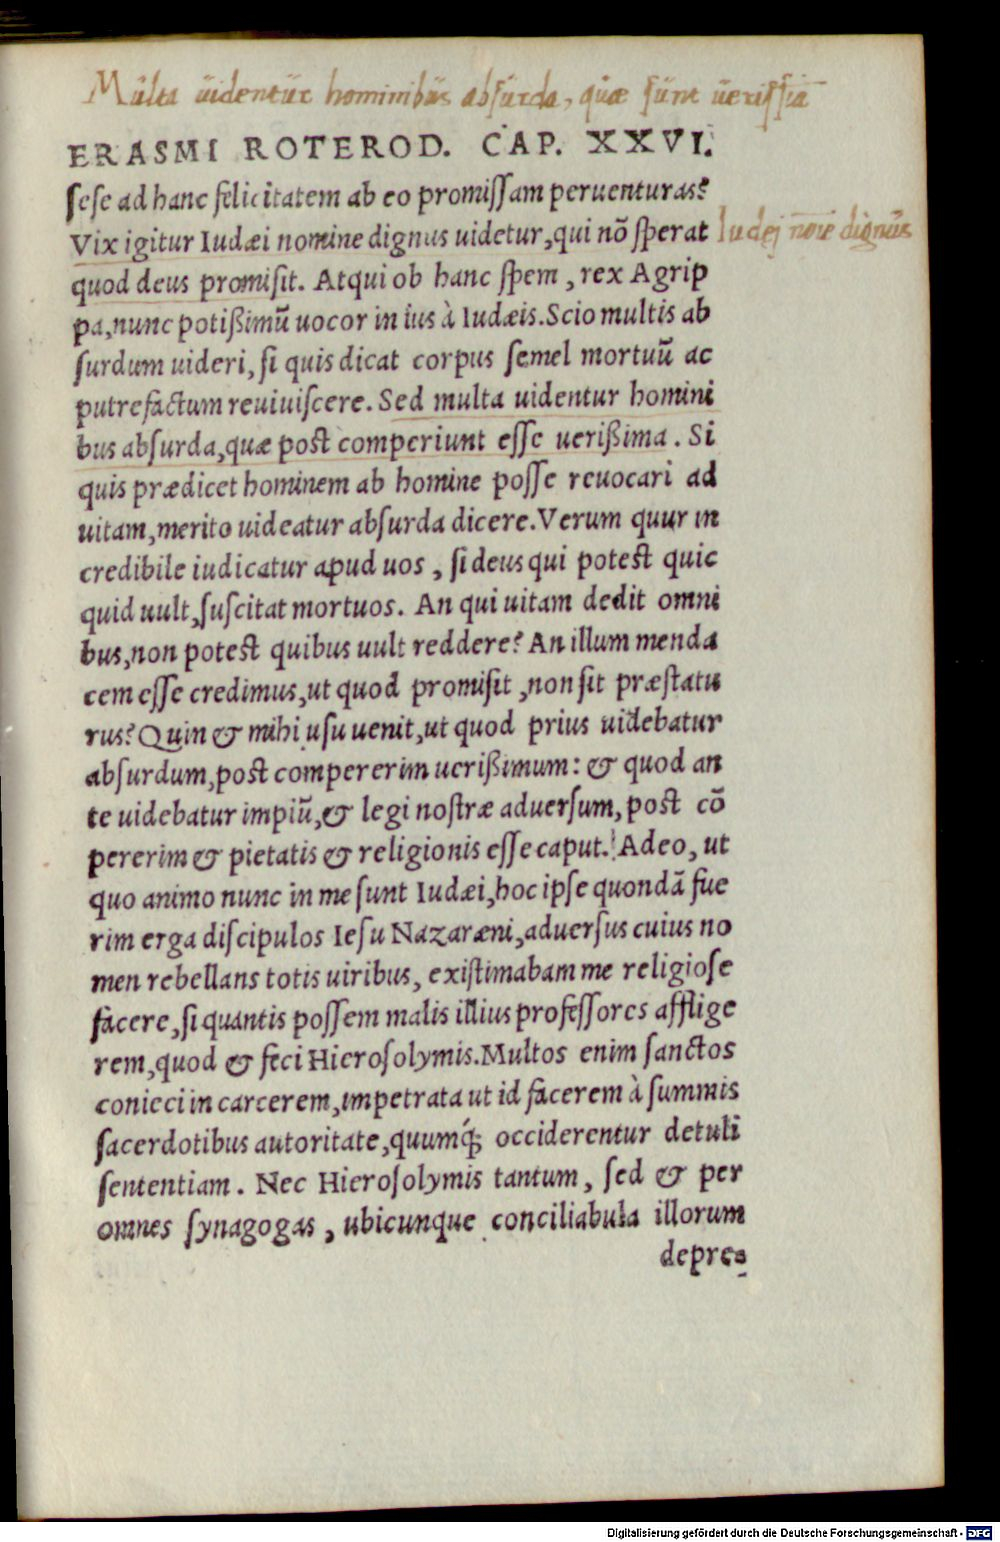 Multa uidentur hominibus absurda, quæ sunt ueriſſīa
ERASMI ROTEROD. CAP. XXVI.
ſeſe ad hanc felicitatem ab eo promiſſam peruenturas?
Vix igitur Iudæi nomine dignus uidetur, qui nõ ſperat
Iudęj noīe dignus
quod deus promiſit. Atqui ob hanc ſpem, rex Agrip
pa, nunc potißimũ uocor in ius à Iudæis. Scio multis ab
ſurdum uideri, ſi quis dicat corpus ſemel mortuũ ac
putrefactum reuiuiſcere. Sed multa uidentur homini
bus abſurda, quæ poſt comperiunt eſſe uerißima. Si
quis prædicet hominem ab homine poſſe reuocari ad
uitam, merito uideatur abſurda dicere. Verum quur in
credibile iudicatur apud uos, ſi deus qui poteſt quic
quid uult, ſuſcitat mortuos. An qui uitam dedit omni
bus, non poteſt quibus uult reddere? An illum menda
cem eſſe credimus, ut quod promiſit, non ſit præſtatu
rus? Quin & mihi uſu uenit, ut quod prius uidebatur
abſurdum, poſt compererim uerißimum: & quod an
te uidebatur impiũ, & legi noſtræ aduerſum, poſt cõ
pererim & pietatis & religionis eſſe caput. Adeo, ut
quo animo nunc in me ſunt Iudæi, hoc ipſe quondã fue
rim erga diſcipulos Ieſu Nazaræni, aduerſus cuius no
men rebellans totis uiribus, exiſtimabam me religioſe
facere, ſi quantis poſſem malis illius profeſſores afflige
rem, quod & feci Hieroſolymis. Multos enim ſanctos
conieci in carcerem, impetrata ut id facerem à ſummis
ſacerdotibus autoritate, quumq́; occiderentur detuli
ſententiam. Nec Hieroſolymis tantum, ſed & per
omnes ſynagogas, ubicunque conciliabula illorum
depres
Digitalisierung gefördert durch die Deutsche Forschungsgemeinschaft - DFG